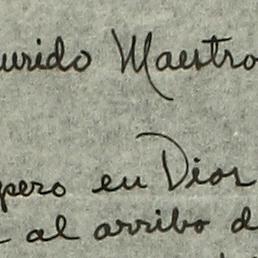 urido Maestro
pero en Dios
al arribo d